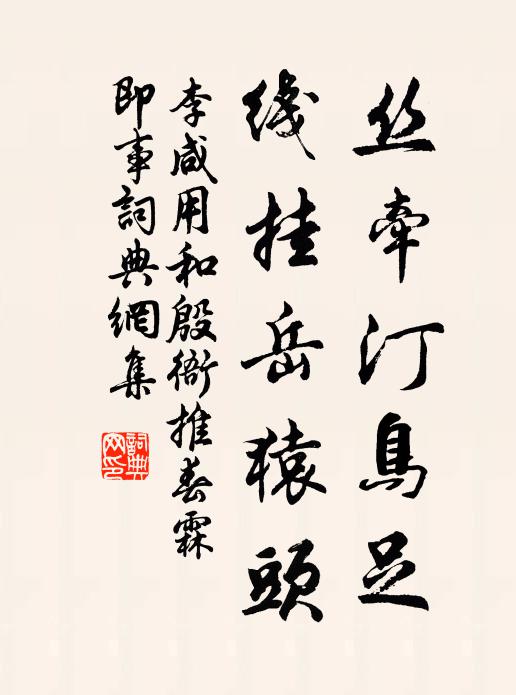 丝牵汀鳥足
线挂岳猿頭
李咸用和殷衙推春霖
即事詞典網集
詞典
网印